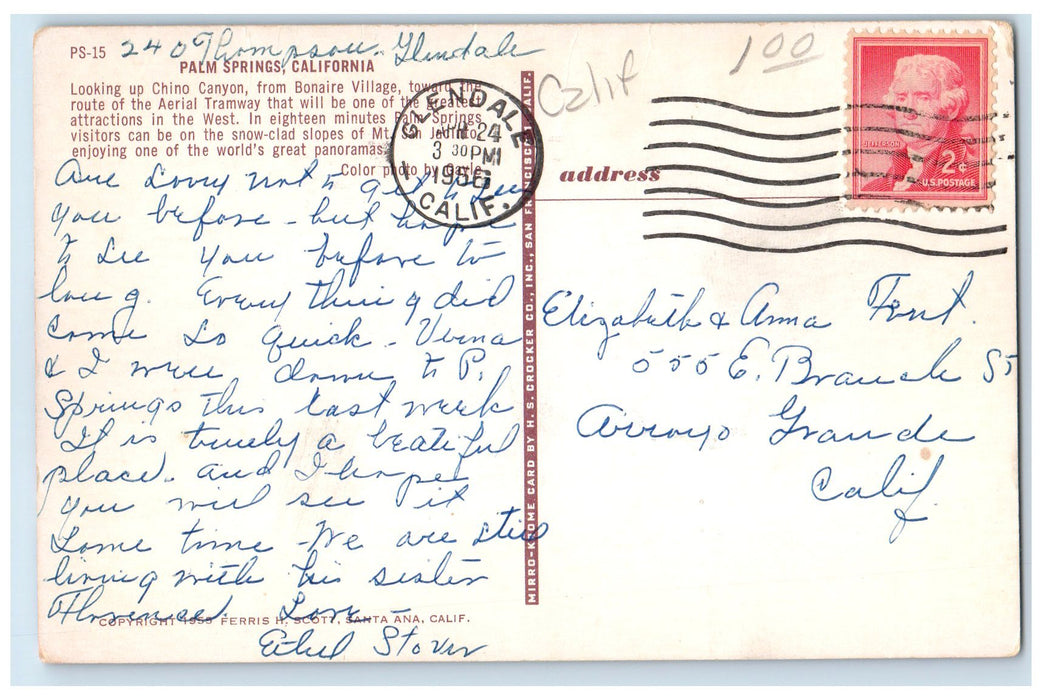 240 Thompson. Glendale
PS-15
PALM SPRINGS, CALIFORNIA
Looking up Chino Canyon, from Bonaire Village, toward the
route of the Aerial Tramway that will be one of the greatest
attractions in the West. In eighteen minutes Palm Springs
visitors can be on the snow-clad slopes of Mt. San Jacinto
enjoying one of the world's great panoramas.
Color photo by Gayle
Am sorry not to get to see
you before - but hope
to see you before to
long. Every thing did
come so quick - Verna
& I were down to P.
Springs this last week
It is truely a beatiful
place. and I hope
you will see it
some time - We are still
living with his sister
Florence. Love -
Ethel Stover
COPYRIGHT 1955 FERRIS H. SCOTT, SANTA ANA, CALIF.
MIRRO-KROME CARD BY H. S. CROCKER CO., INC., SAN FRANCISCO, CALIF.
Calif
1 00
GLENDALE
24
3 30 PM
CALIF.
JEFFERSON
2¢
U.S. POSTAGE
address
Elizabeth & Anna Font.
555 E. Branch St
Arroyo Grande
Calif.